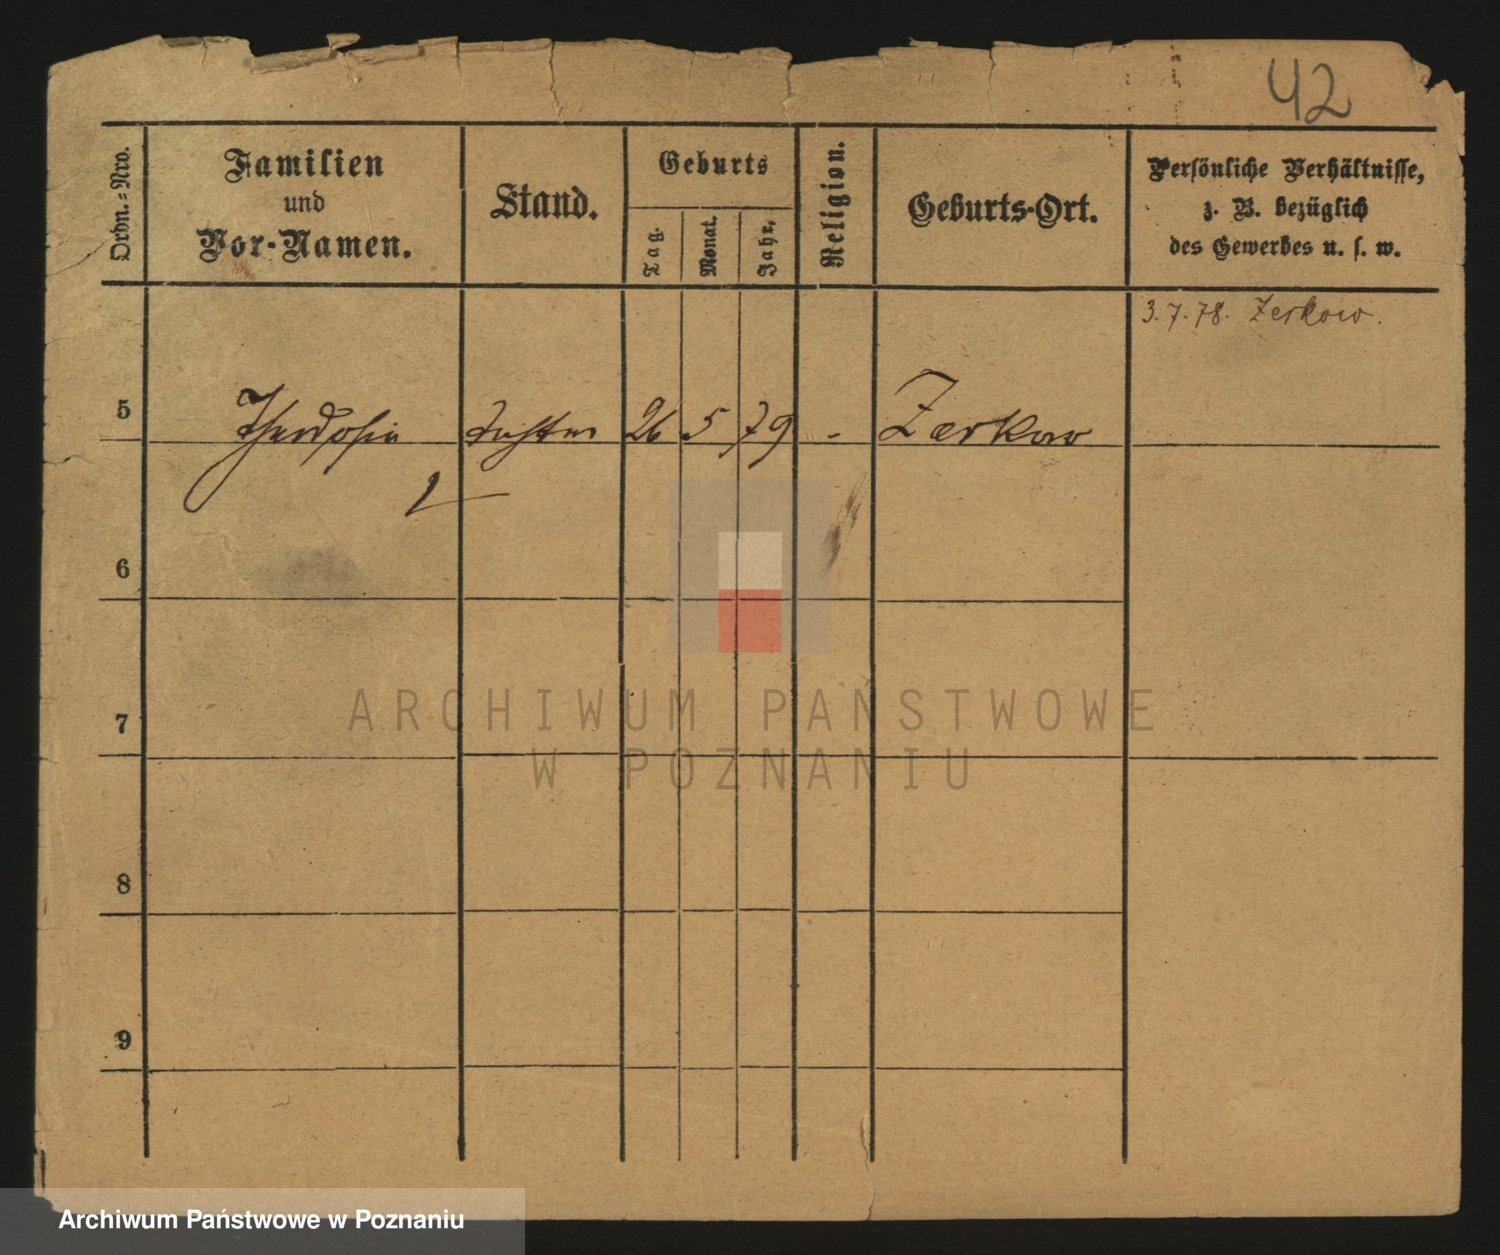 42
Ordn.=Nro.
Familien
und
Vor-Namen.
Stand.
Geburts
Tag.
Monat.
Jahr.
Religion.
Geburts-Ort.
Persönliche Verhältnisse,
z. B. bezüglich
des Gewerbes u. s. w.
3.7.78. Zerkow.
5 Theodosia Tochter 26 5 79 - Zerkow
6
7
8
9
ARCHIWUM PAŃSTWOWE
W POZNANIU
Archiwum Państwowe w Poznaniu